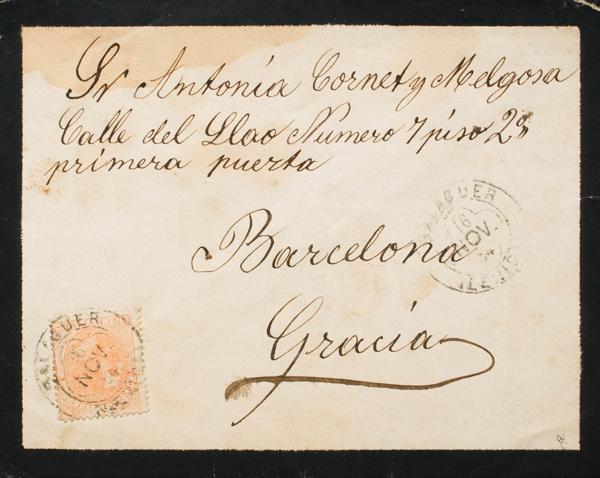 Sr Antonia Cornet y Melgosa
Calle del Llao Numero 7 piso 2º
primera puerta
BALAGUER
16
NOV.
(LERIDA)
Barcelona
Gracia
BALAGUER
NOV.